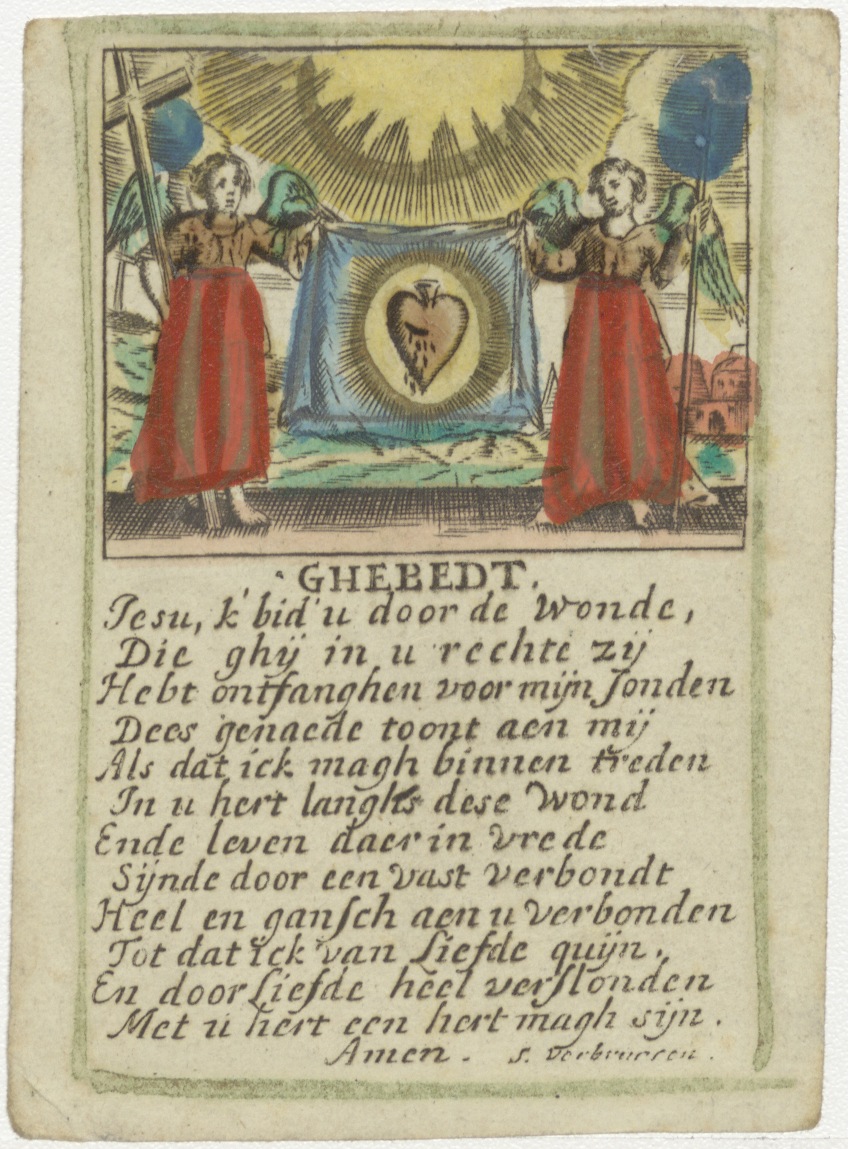 GHEBEDT.
Iesu, k' bid u door de Wonde,
Die ghij in u rechte zij
Hebt ontfanghen voor mijn sonden
Dees genaede toont aen mij
Als dat ick magh binnen treden
In u hert langhs dese Wond
Ende leven daer in vrede
Sijnde door een vast verbondt
Heel en gansch aen u verbonden
Tot dat ick van Liefde quijn.
En door Liefde heel verslonden
Met u hert een hert magh sijn.
Amen. S. Verbruggen.